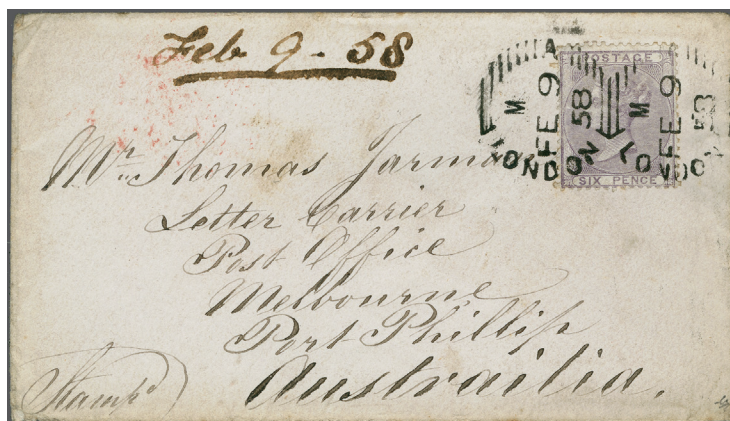 Feb 9 - 58
POSTAGE
SIX PENCE
A
M
FE 9
58
LONDON
M
FE 9
58
LONDON
Mr. Thomas Jarman
Letter Carrier
Post Office
Melbourne
Port Phillip
Austrailia.
Stampd